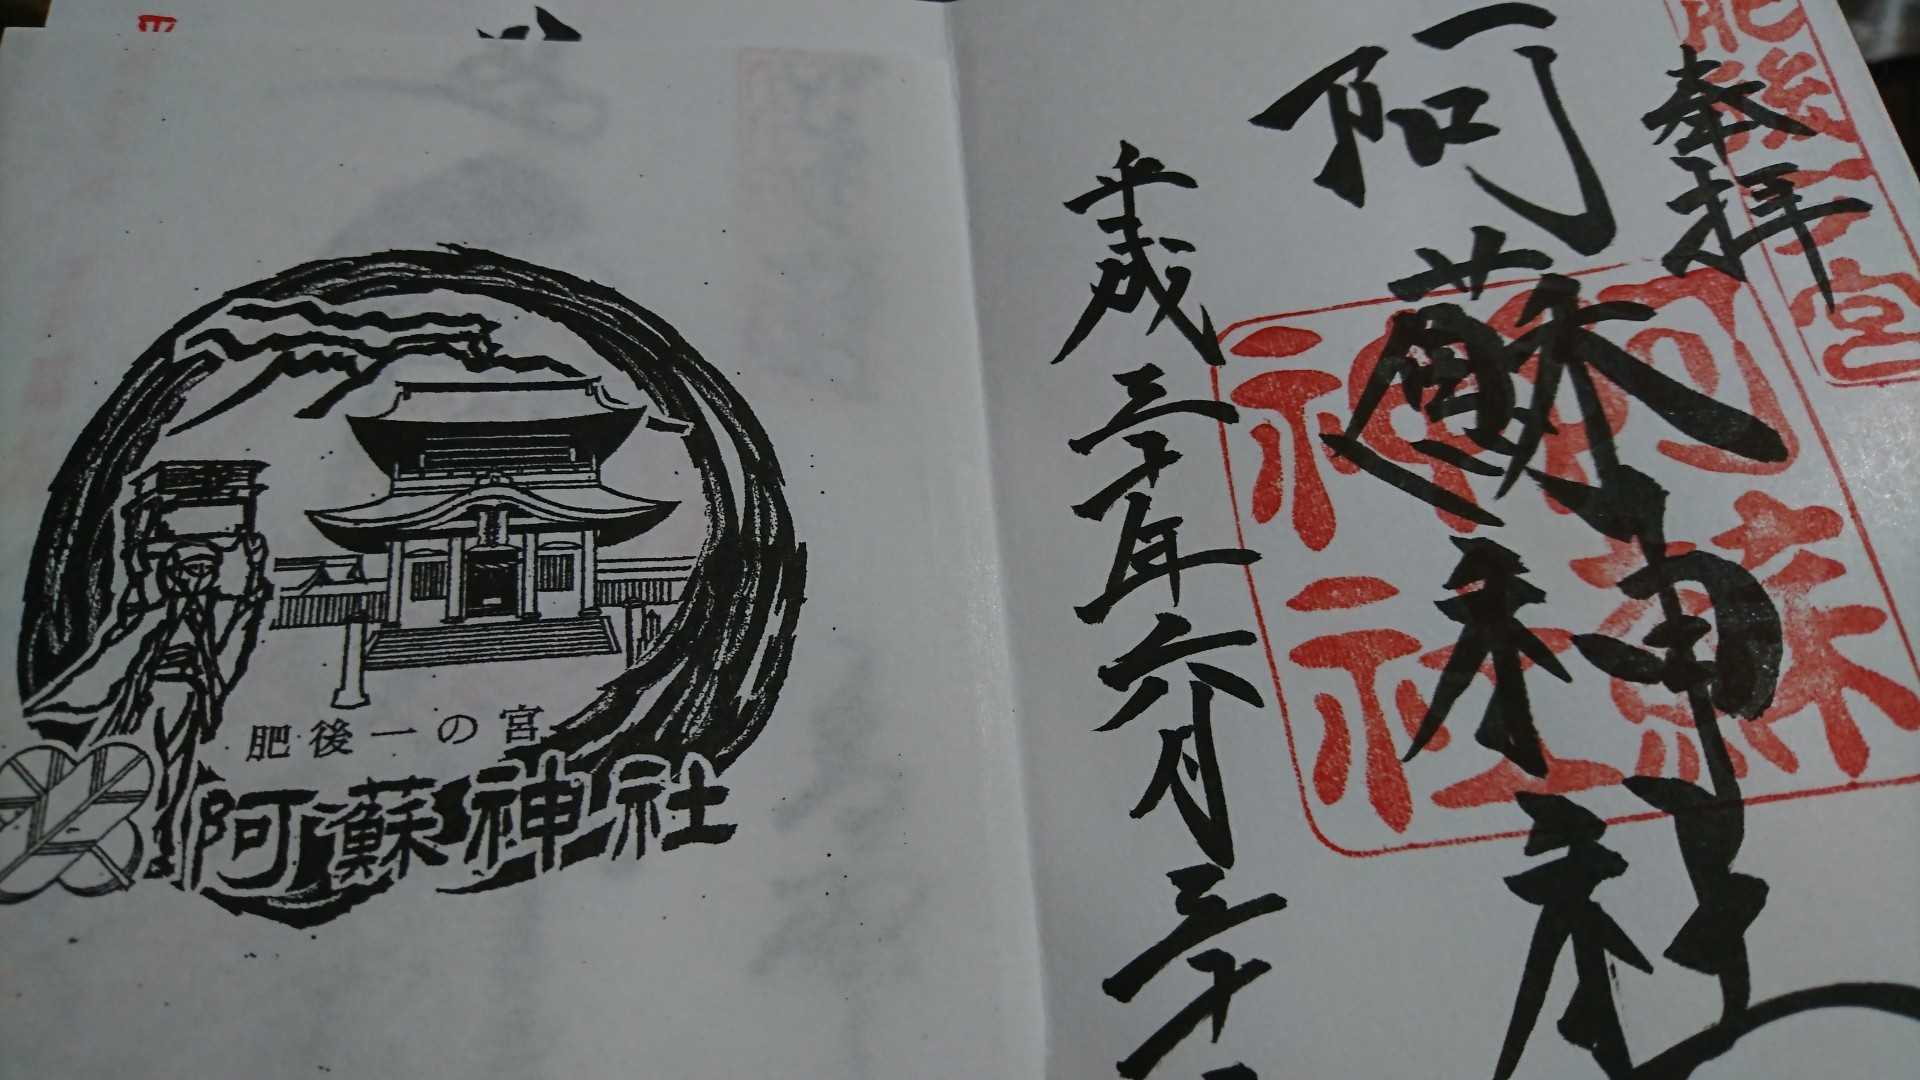 肥後一宮
奉拝
阿蘇神社
阿蘇神社
平成三十年六月三十
肥後一の宮
阿蘇神社